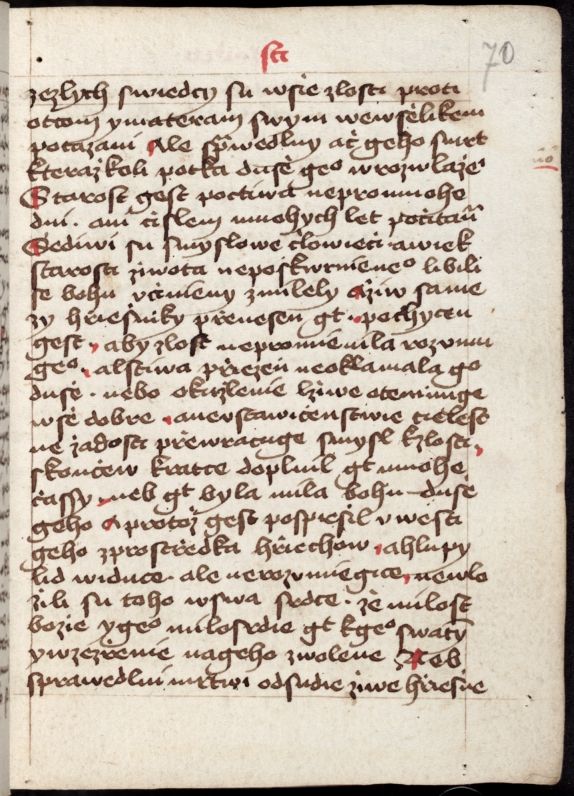 sti
70
zezlych swiedcy su wsie zlosti proti
ottom ymateram swym wewsselikem
potazani Ale sp̄wedlny ac̄ geho smrt
kterażkoli potka dusse geͦ wrozwlażeͥ
Starost gest poctiwa nepromnohe
dni · ani cislem mnohych let pocitaná
Ssediwi su smyslowe clowieci awiek
starosti żiwota neposkwrnieneͦ libili
se bohu vcinieny zmilely ażiw same
zy hrziesniky przenesen gt · pochycen
gest, aby zlost nepromienila rozumu
geͦ · alstiwa przizen neoklamala go
dusse · nebo okuzlenie lziwe otemnuge
wsse dobre · anevstawicenstwie cieles
ne żadosti przewracuge smysl kzlosti,
skoncew kratce doplnil gt mnohe
cassy · neb gt byla mila bohu dusse
geho A protoż gest pospiessil vwesti
geho zprostrzedka hrziechow, ahlupy
lid widuce · ale nerozumiegice, newlo
żili su toho wswa srdce · że milost
bozie ygeͦ milosrdie gt kgeͦ swatȳ
ywzezrzenie nageho zwolene Neb
sprawedlni mrtwi odsudie żiwe hrziesne